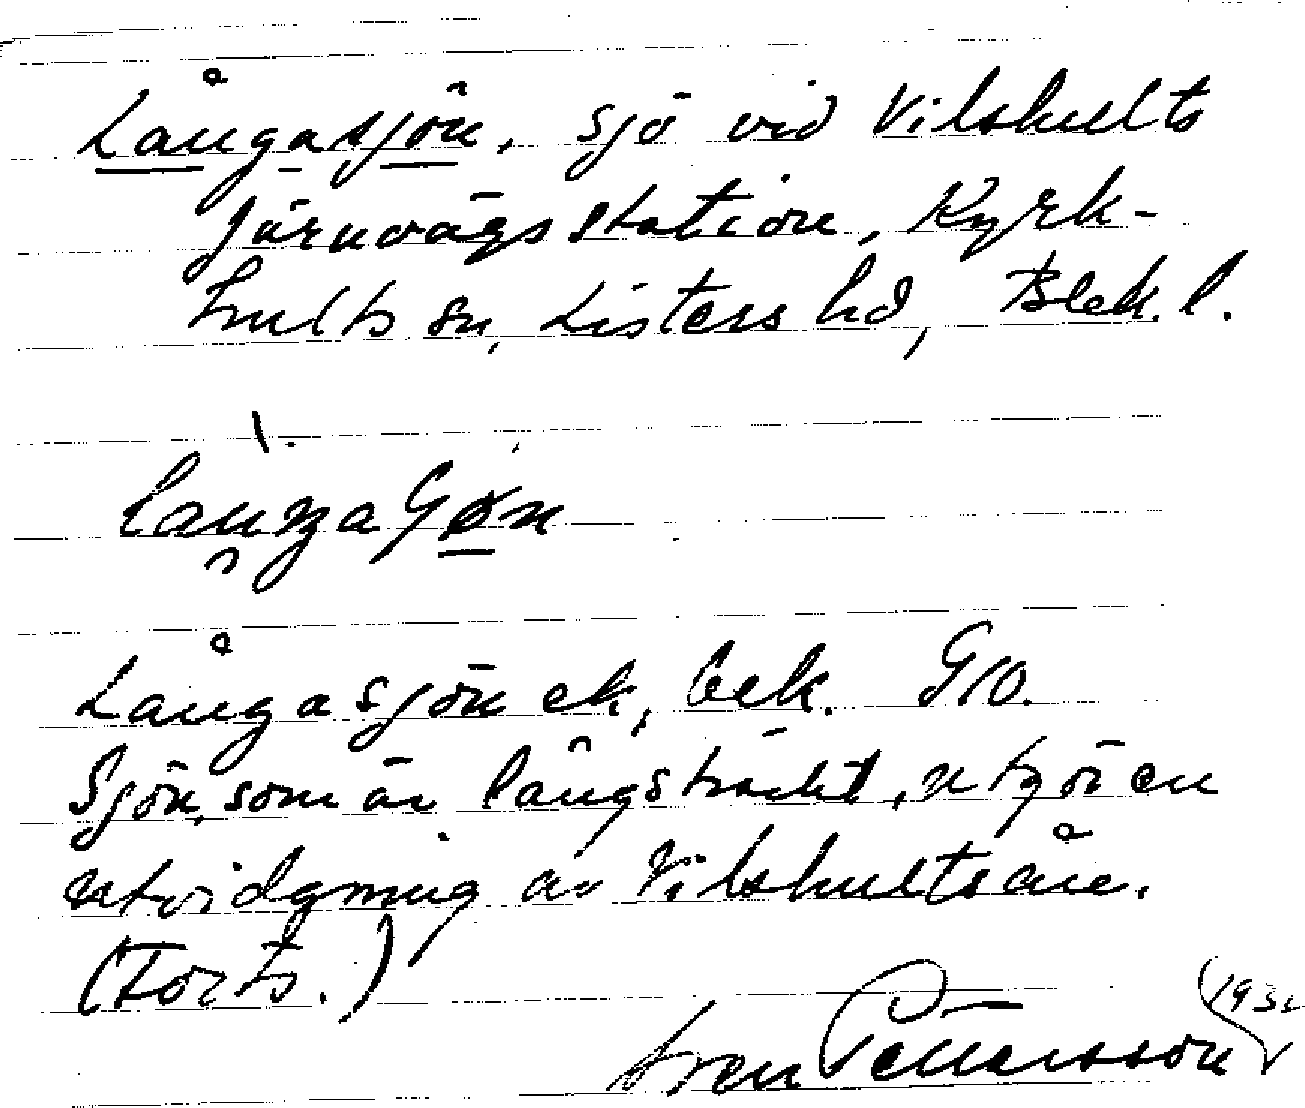 Långasjön, sjö vid Vilshults
järnvägsstation, Kyrk-
hults sn, Listers hd, Blek. l.
Långasjön ek, bek. G 10.
Sjön, som är långsträckt, utgör en
utvidgning av Vilshultsån.
(Forts.)
Sven Pettersson 1932